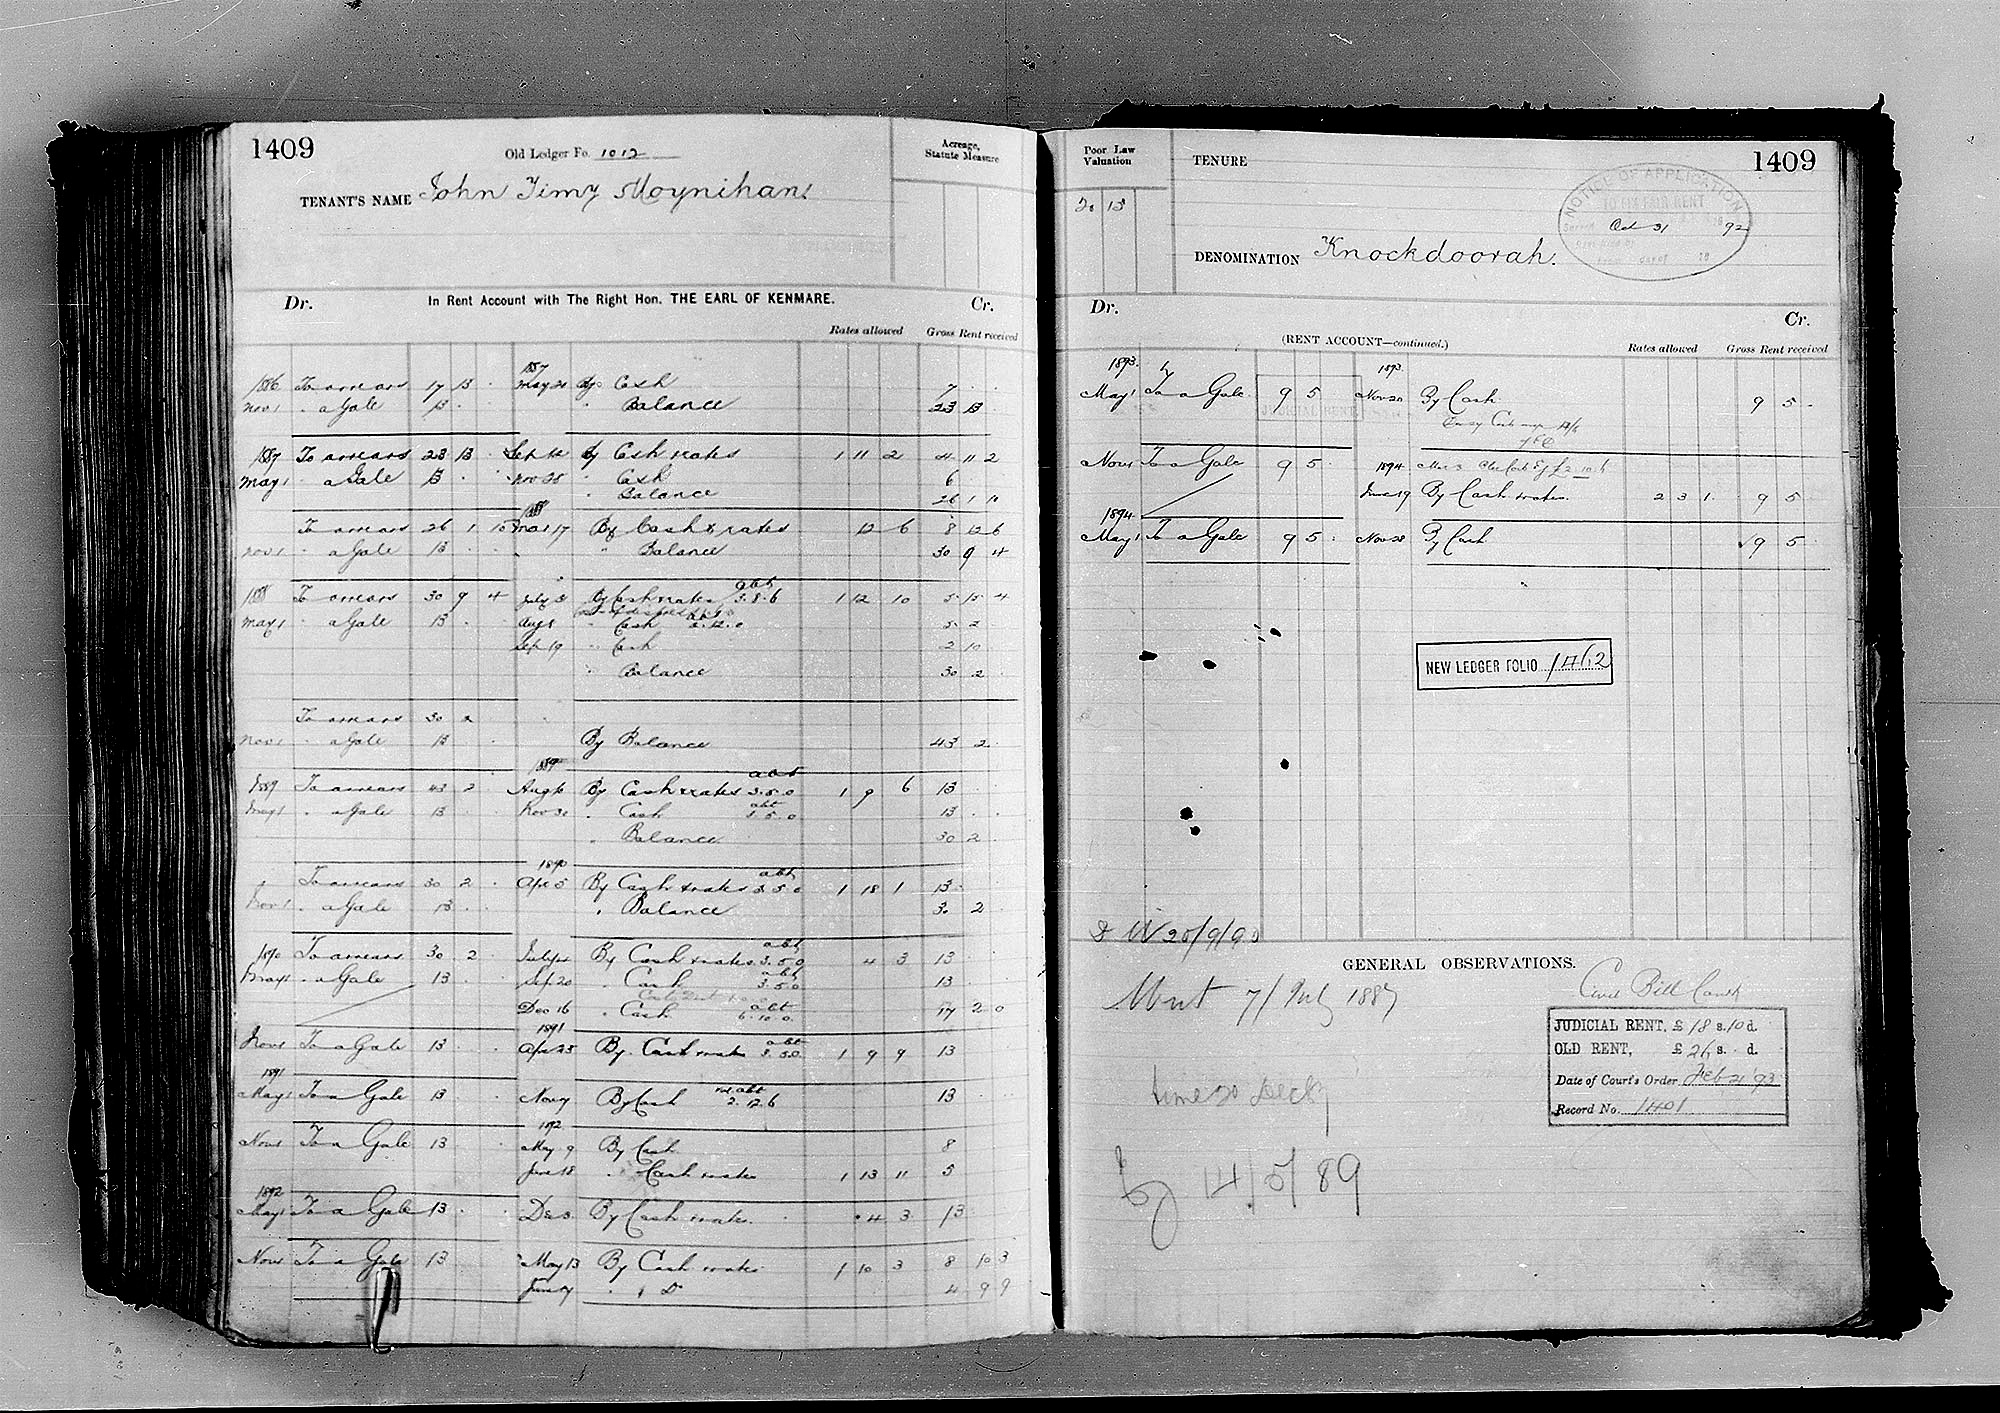 1409
Old Ledger Fo. 1012
Acreage, Statute Measure
TENANT'S NAME John Timy Moynihan
Dr. In Rent Account with The Right Hon. THE EARL OF KENMARE. Cr.
Rates allowed Gross Rent received
1887
1886 To arrears 17 13 · May 21 By Cash 7 · ·
Nov 1 " a Gale 13 · " Balance 23 13 ·
1887 To arrears 23 13 · Sept 12 By Cash & rates 1 11 2 4 11 2
May 1 " a Gale 13 · Nov 25 " Cash 6
" Balance 26 1 10
1888
To arrears 26 1 10 Mar 17 By Cash & rates 12 6 8 12 6
Nov 1 " a Gale 13 · " Balance 30 9 4
abt
1888 To arrears 30 9 4 July 31 By Cash & rates 3.8.6 1 12 10 5 15 4
May 1 " a Gale 13 · Aug 1 " Cash 2.12.0 5 2
Sep 19 " Cash 2 10
" Balance 30 2
To arrears 30 2
Nov 1 " a Gale 13 By Balance 43 2
1889 abt
1889 To arrears 43 2 Aug 6 By Cash & rates 3.5.0 1 9 6 13 · ·
abt
May 1 " a Gale 13 Nov 30 " Cash 3.5.0 13 · ·
" Balance 30 2 ·
1890 abt
" To arrears 30 2 · Apr 5 By Cash & rates 3.5.0 1 18 1 13 ·
Nov 1 " a Gale 13 · · " Balance 30 2
abt
1890 To arrears 30 2 · July By Cash & rates 3.5.0 4 3 13 ·
abt
May 1 " a Gale 13 Sep 20 " Cash 3.5.0 13
abt
Dec 16 " Cash 6.10.0 17 2 0
1891 abt
Nov 1 To a Gale 13 Apr 25 By Cash & rates 3.5.0 1 9 9 13
1891 abt
May 1 To a Gale 13 Nov By Cash 2.12.6 13
1892
Nov 1 To a Gale 13 May 9 By Cash 8
June 18 " Cash & rates 1 13 11 5
1892
May 1 To a Gale 13 · Dec 3 By Cash & rates 4 3 13
Nov 1 To a Gale 13 May 13 By Cash & rates 1 10 3 8 10 3
June " " Do 4 9 9
Poor Law Valuation
TENURE
1409
20 15
NOTICE OF APPLICATION
TO FIX FAIR RENT
Served Oct 31 92
DENOMINATION Knockdoorah.
Dr. Cr.
(RENT ACCOUNT—continued.) Rates allowed Gross Rent received
1893. 1893.
May 1 To a Gale 9 5 Nov 20 By Cash 9 5 -
JUDICIAL RENT
Nov 1 To a Gale 9 5 · 1894
June 19 By Cash & rates. 2 3 1 9 5
1894
May 1 To a Gale 9 5 · Nov 28 By Cash 9 5
NEW LEDGER FOLIO 1462
20/9/90
GENERAL OBSERVATIONS.
Writ 7/ July 1887
Civil Bill Court
JUDICIAL RENT, £ 18 s. 10 d.
OLD RENT, £ 26 s. · d.
Date of Court's Order Feb 21 '93
Record No. 1401
14/5/89